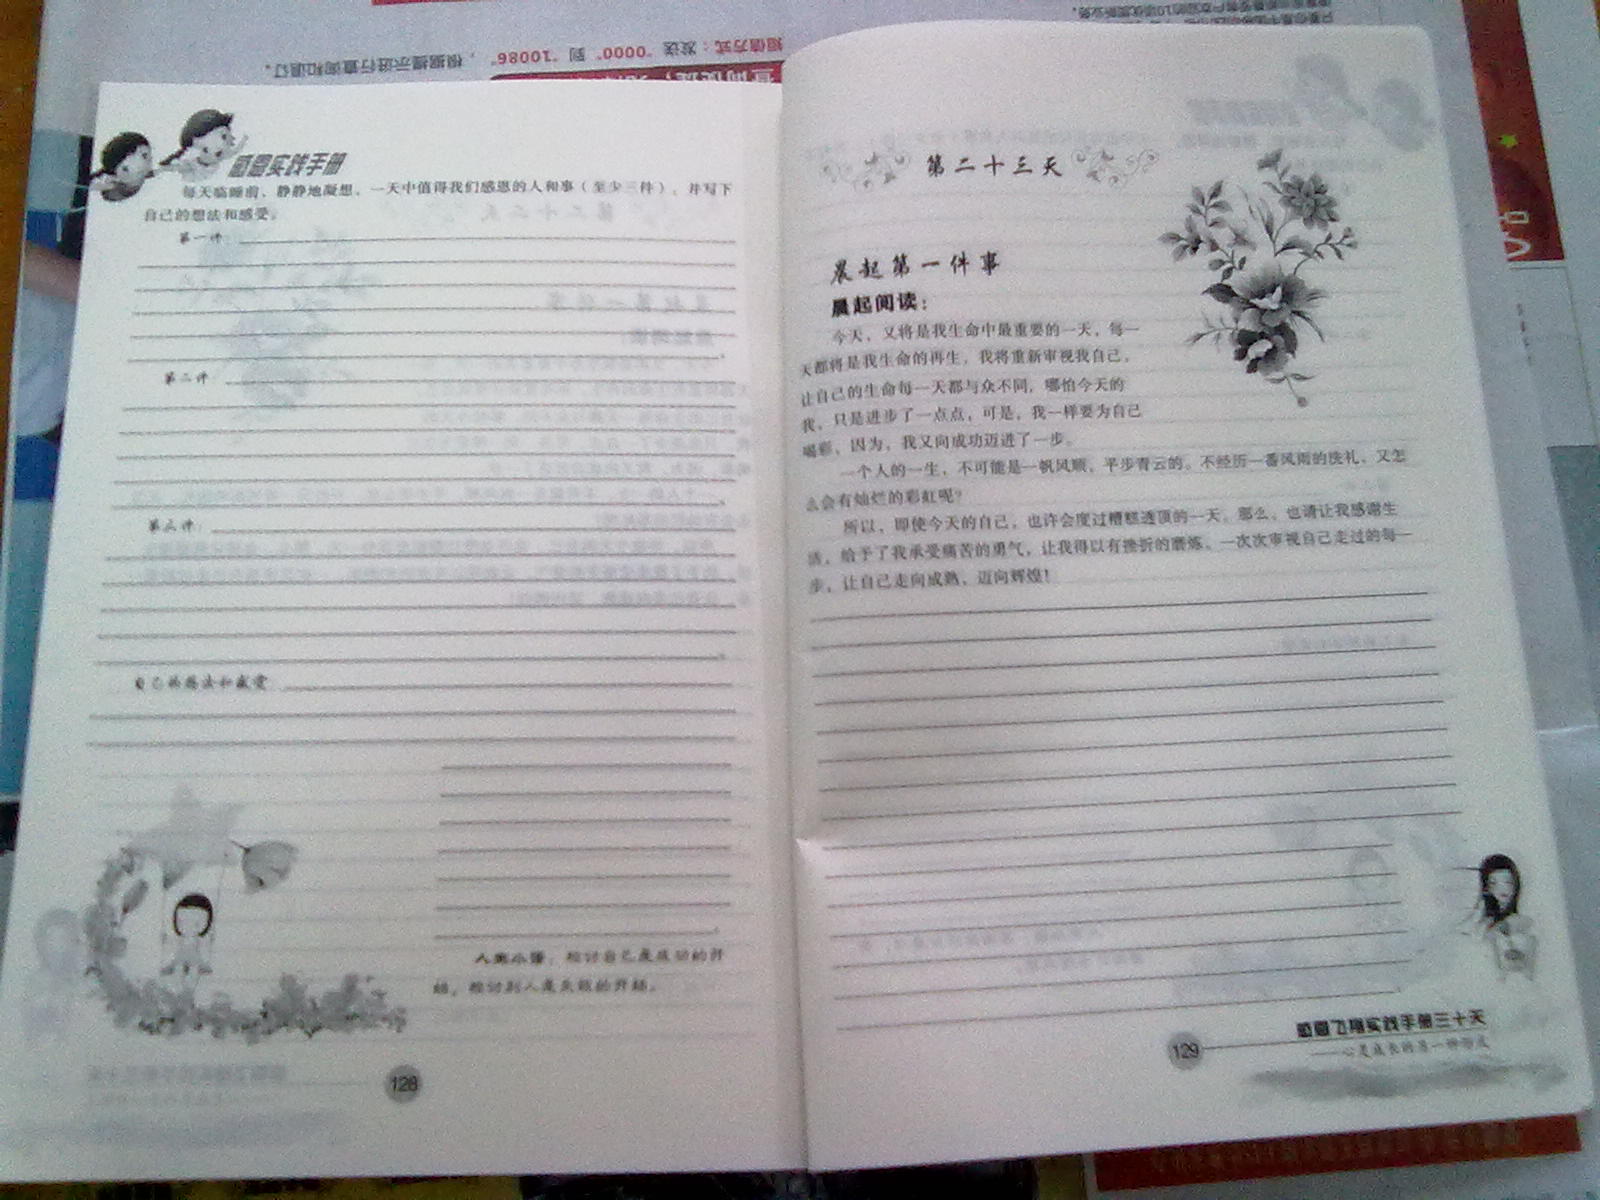 短信方式：发送“0000”到“10086”，根据提示进行查询和退订。
感恩实践手册
每天临睡前、静静地凝想、一天中值得我们感恩的人和事（至少三件），并写下
自己的想法和感受。
第一件：
第二件：
第三件：
自己的想法和感受：
人生小语：检讨自己是成功的开
始，检讨别人是失败的开始。
128
第二十三天
晨起第一件事
晨起阅读：
今天，又将是我生命中最重要的一天，每一
天都将是我生命的再生，我将重新审视我自己，
让自己的生命每一天都与众不同，哪怕今天的
我，只是进步了一点点，可是，我一样要为自己
喝彩，因为，我又向成功迈进了一步。
一个人的一生，不可能是一帆风顺，平步青云的。不经历一番风雨的洗礼，又怎
么会有灿烂的彩虹呢？
所以，即使今天的自己，也许会度过糟糕透顶的一天，那么，也请让我感谢生
活，给予了我承受痛苦的勇气，让我得以有挫折的磨炼，一次次审视自己走过的每一
步，让自己走向成熟，迈向辉煌！
129
感恩飞翔实践手册三十天
——心灵成长的另一种形式